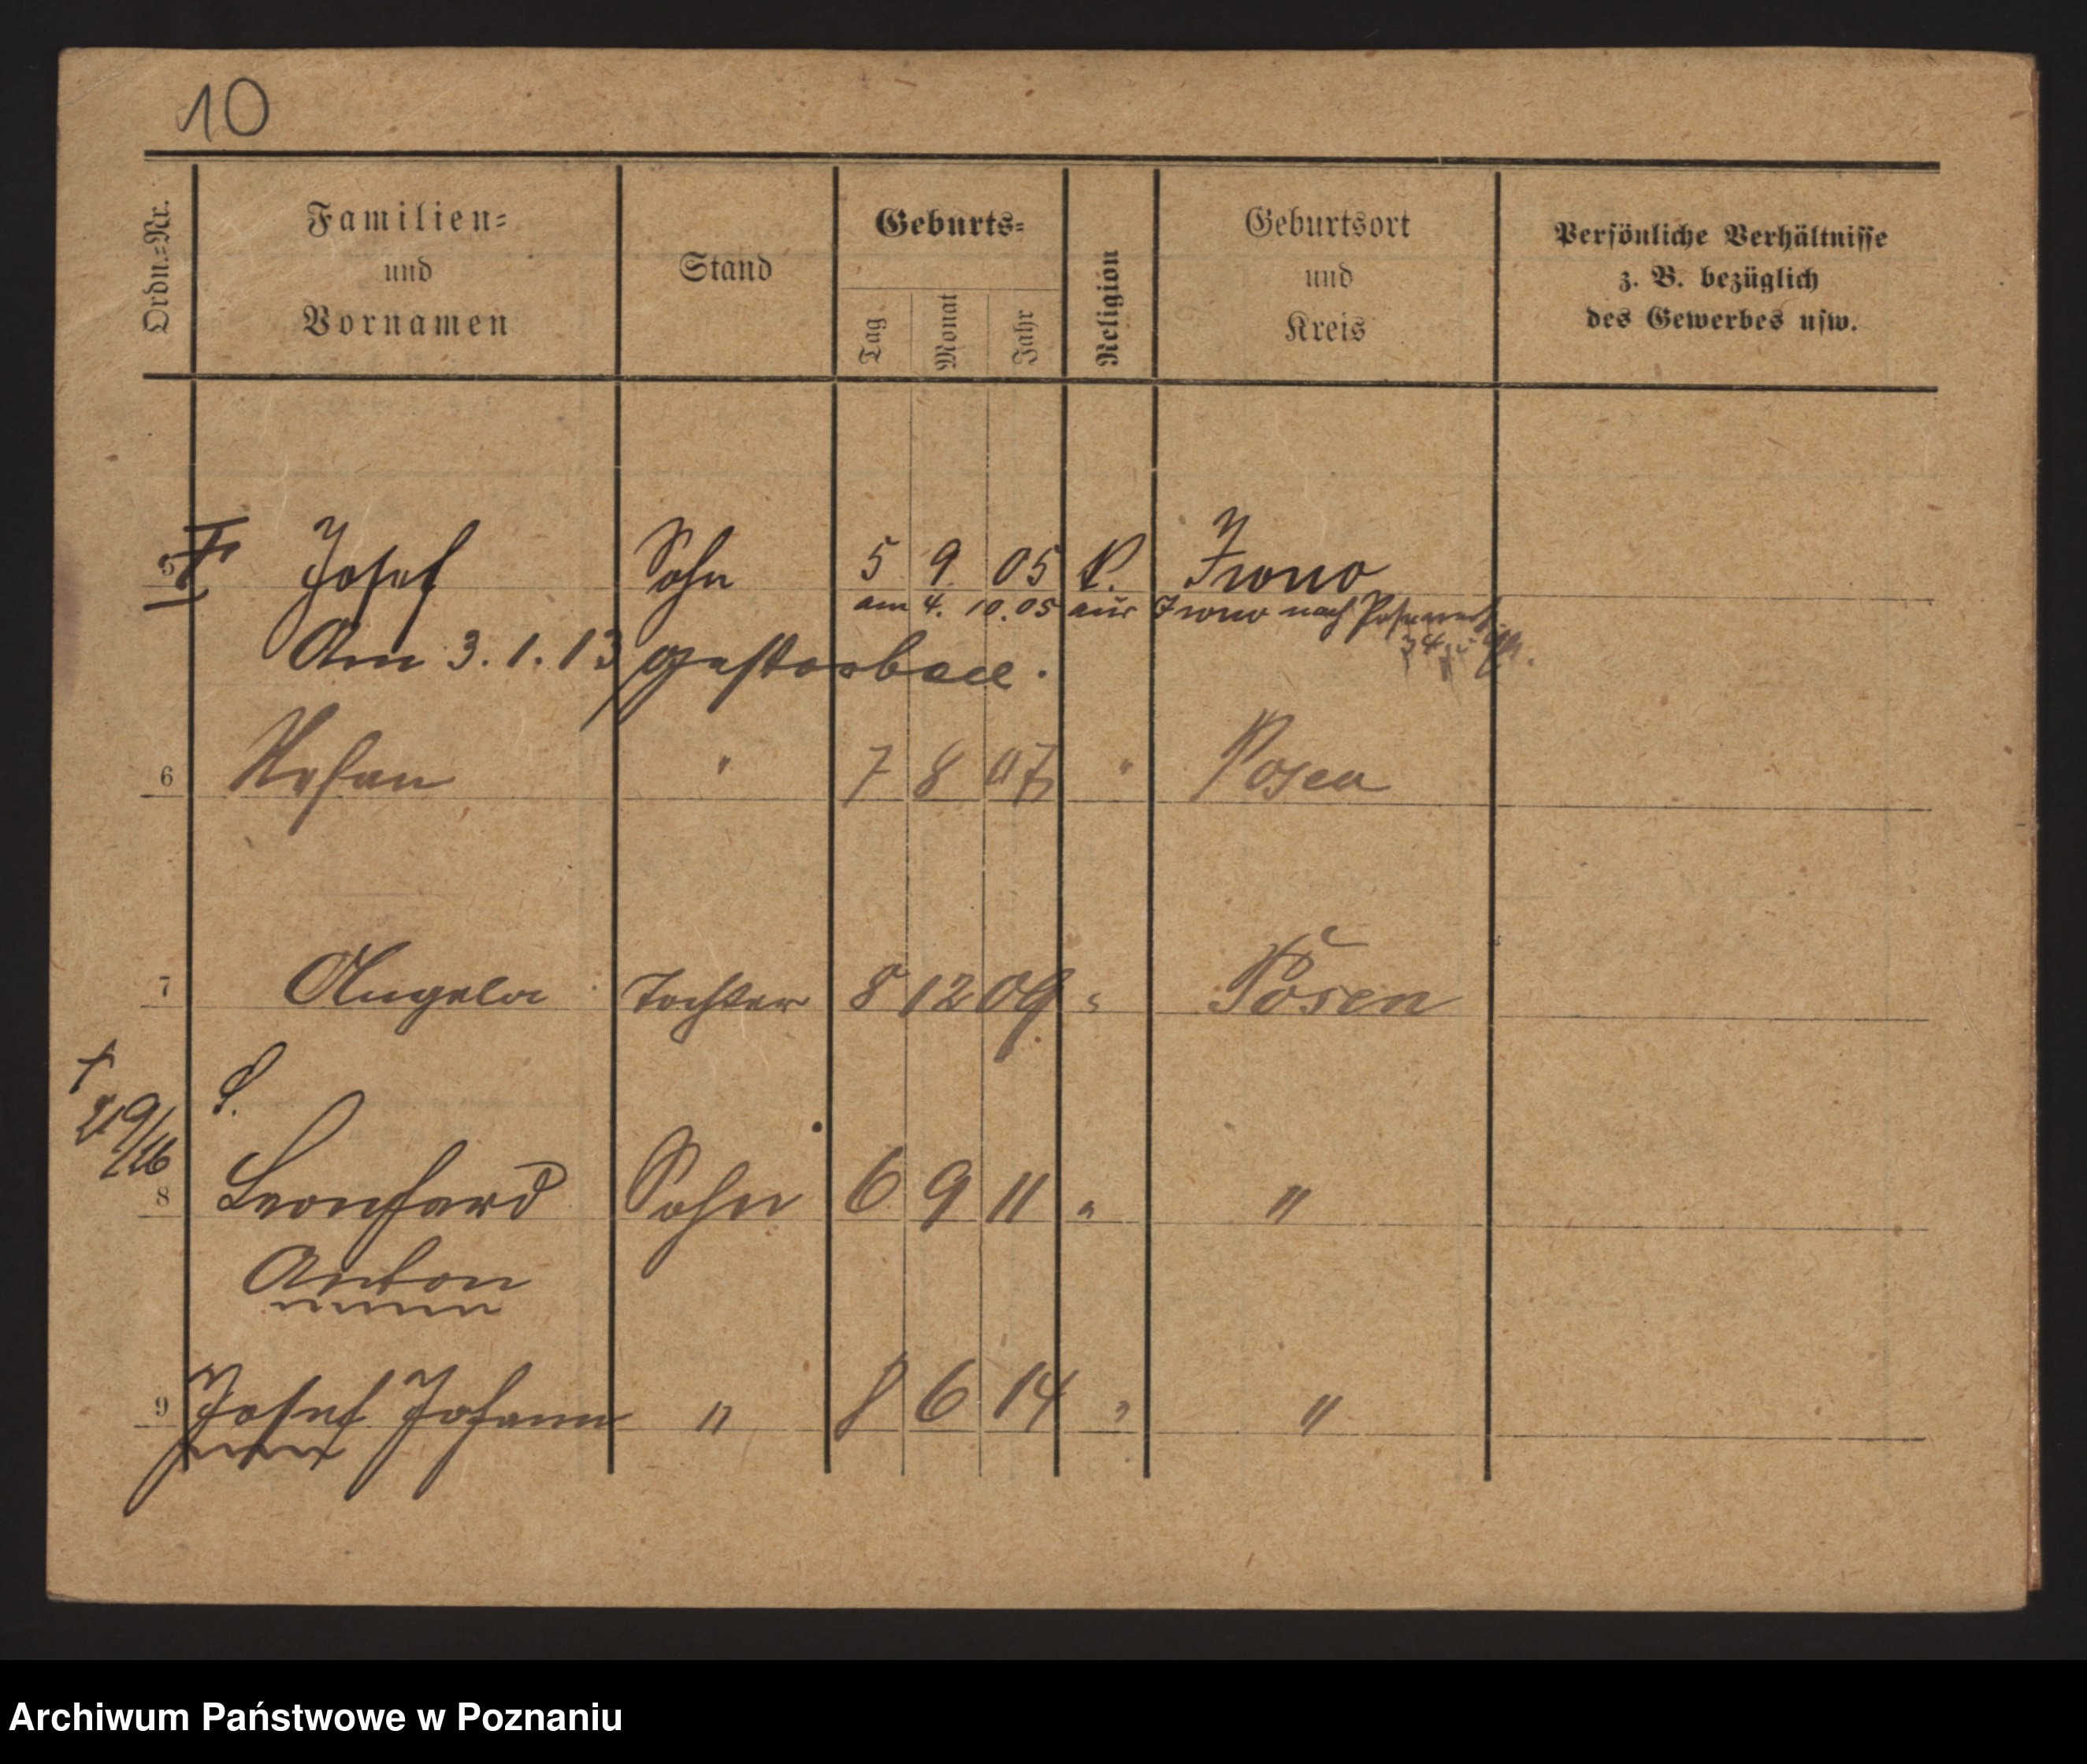 10
Ordn.=Nr.
Familien=
und
Vornamen
Stand
Geburts=
Tag
Monat
Jahr
Religion
Geburtsort
und
Kreis
Persönliche Verhältnisse
z. B. bezüglich
des Gewerbes usw.
5 Josef Sohn 5 9. 05 k.
am 4. 10. 05 aus nach
Am 3. 1. 13 gestorben.
6 Stefan " 7 8 07 " Posen
7 Angela Tochter 8 12 09 " Posen
†
S.
8 Leonhard Sohn 6 9 11 " "
Anton
9 Josef Johann " 8 6 14 " "
Archiwum Państwowe w Poznaniu